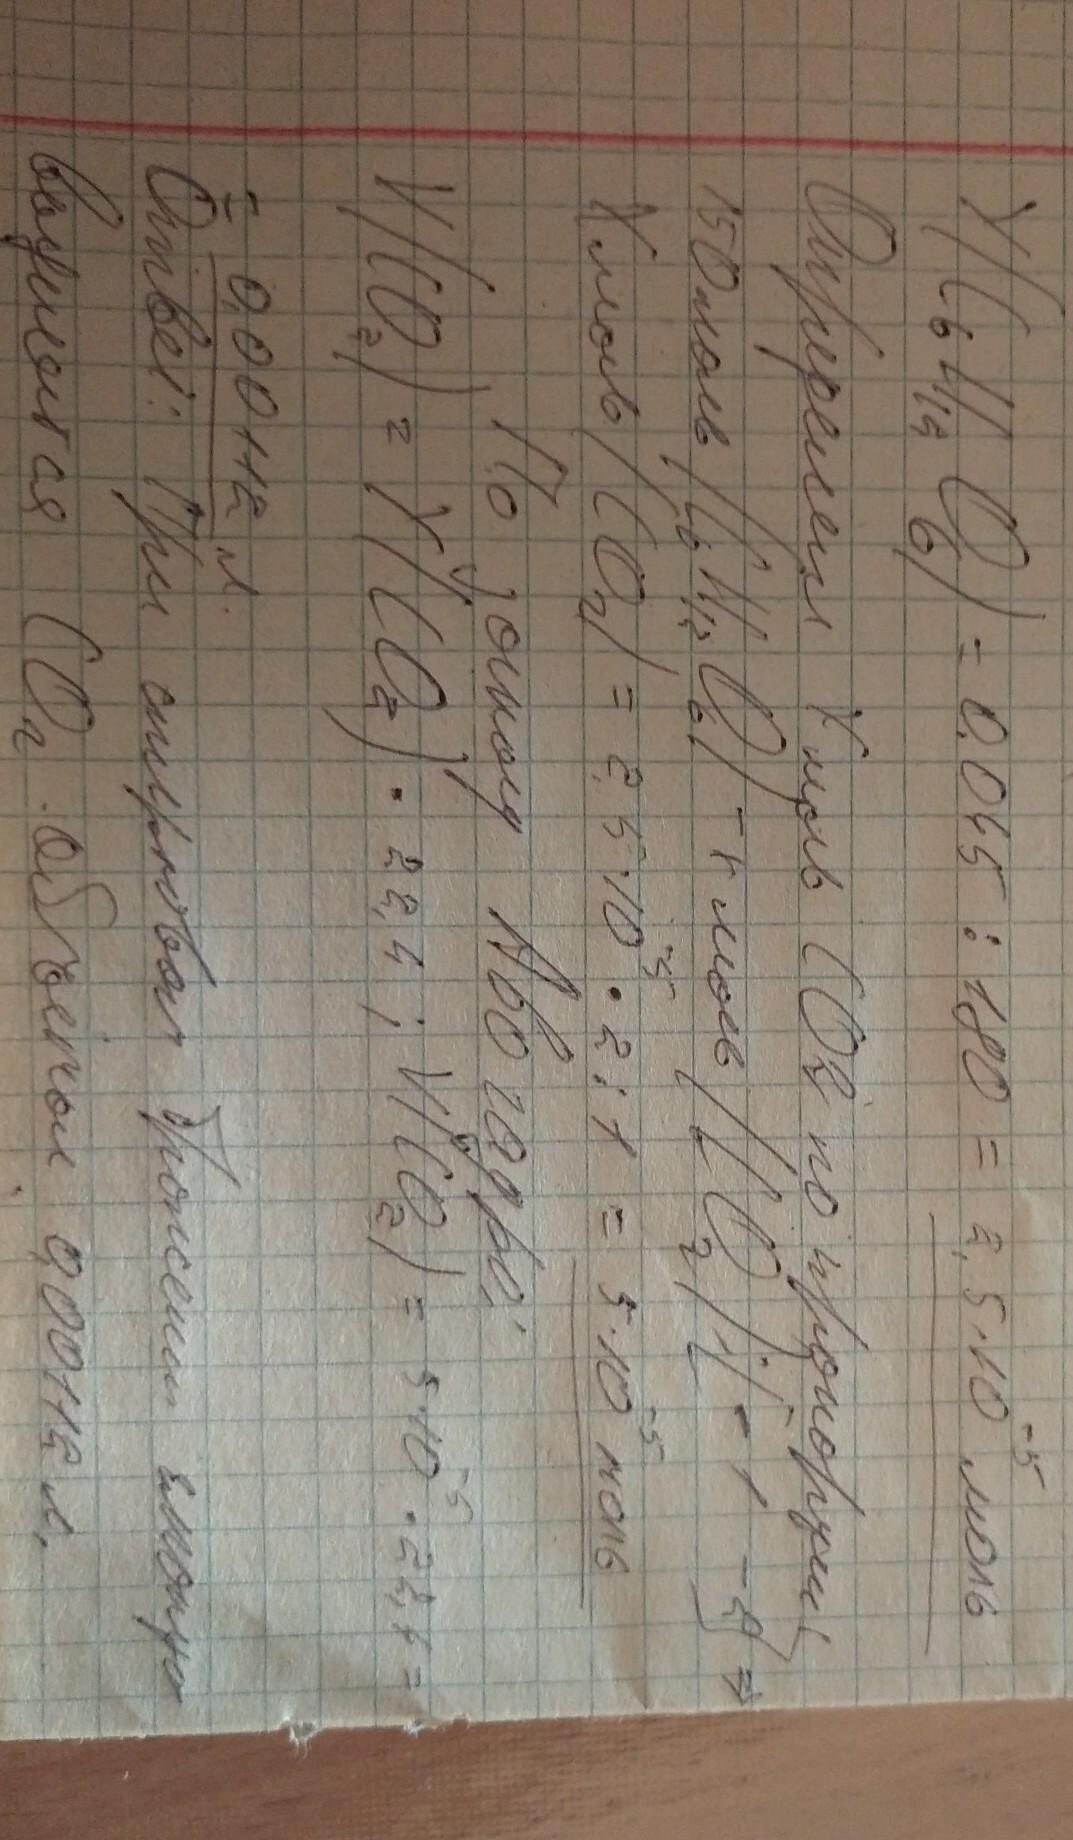 Y(C₆H₁₂O₆) = 0.045 : 180 = 2,5·10⁻⁵ моль
Определим X моль CO₂ по пропорции
моль (C₆H₁₂O₆) - X моль (CO₂) ; - 1 - 2 ⇒
X моль (CO₂) = 2,5·10⁻⁵ · 2 : 1 = 5·10⁻⁵ моль
По закону Авогадро:
V(CO₂) = Y(CO₂) · 22,4 ; V(CO₂) = 5·10⁻⁵ · 22,4 =
= 0,00112 л.
Ответ: При спиртовом брожении
выделится CO₂ объёмом 0,00112 л.